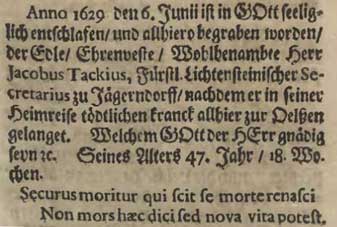 Anno 1629 den 6. Junii ist in GOtt seelig-
lich entschlafen/ und allhiero begraben worden/
der Edle/ Ehrenveste/ Wohlbenambte Herr
Jacobus Tackius, Fürstl. Lichtensteinischer Se-
cretarius zu Jägerndorff/ nachdem er in seiner
Heimreise tödtlichen kranck allhier zur Oelßen
gelanget. Welchem GOtt der HErr gnädig
seyn ꝛc. Seines Alters 47. Jahr/ 18. Wo-
chen.
Securus moritur qui scit se morte renasci
Non mors hæc dici sed nova vita potest.